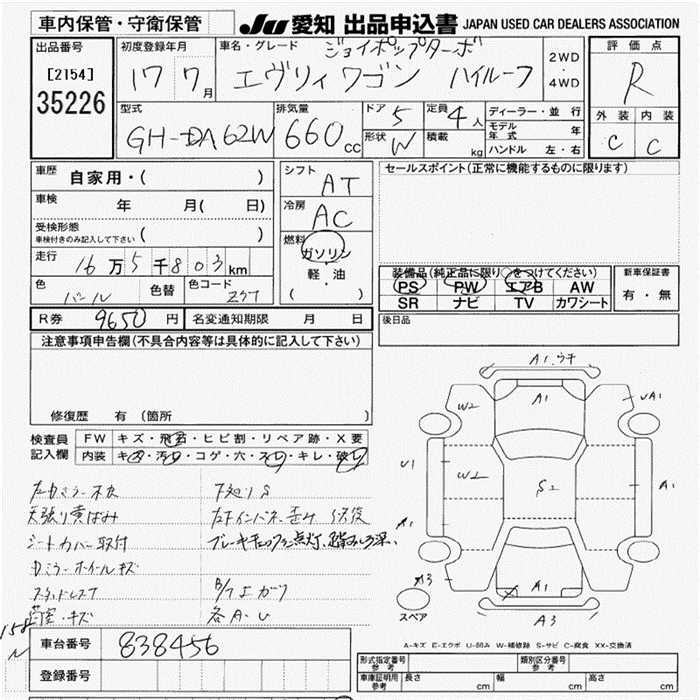 車内保管・守衛保管
JU 愛知 出品申込書 JAPAN USED CAR DEALERS ASSOCIATION
出品番号
[2154]
35226
初度登録年月
17 7月
車名・グレード
ジョイポップターボ
エヴリィワゴン ハイルーフ
2WD
・
4WD
評価点
R
外装 内装
C C
型式
GH-DA62W
排気量
660cc
ドア 5
形状 W
定員 4人
積載 kg
ディーラー・並行
モデル年式 年
ハンドル 左・右
車歴
自家用・( )
車検
年 月( 日)
受検形態
車検付きのみ記入して下さい ( )
走行
16万5千803km
色
パール
色替
色コード
Z7T
シフト
AT
冷房
AC
燃料
ガソリン
・
軽・油
( )
セールスポイント(正常に機能するものに限ります)
装備品(純正品に限り○をつけてください)
PS PW エアB AW
SR ナビ TV カワシート
新車保証書
有・無
後日品
R券 9650円 名変通知期限 月 日
注意事項申告欄(不具合内容等は具体的に記入して下さい)
修復歴 有(箇所 )
検査員
記入欄
FW キズ・飛石・ヒビ割・リペア跡・X要
内装 キズ・汚れ・コゲ・穴・スレ・キレ・破れ
天張り黄ばみ
シートカバー取付
下廻りS
ブレーキ
点灯、
キズ
各A・U
158
車台番号 838456
登録番号
A1.ウチ
W2
A1
UA1
U1
W2
S2
A1
A1
A3
A1
A3
スペア
A-キズ E-エクボ U-凹み W-補修跡 S-サビ C-腐食 XX-交換済
形式指定番号 参考 類別区分番号 参考
車庫証明用 参考 長さ cm 幅 cm 高さ cm